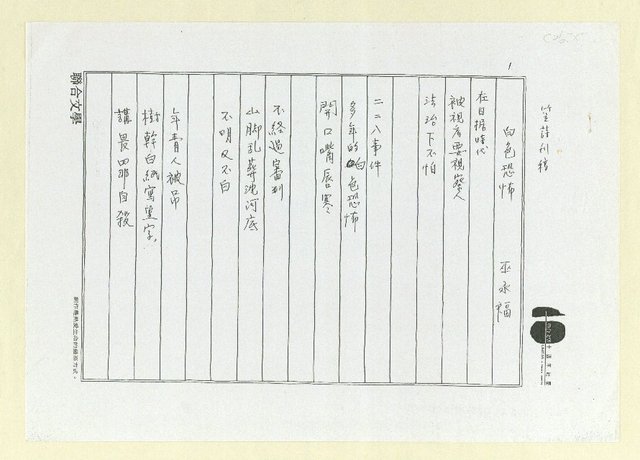 笠詩刊稿
1
白色恐怖
巫永福
在日据時代
被視看要視察人
法治下不怕
二二八事件
多年的白色恐怖
開口嘴唇寒
不經過審判
山脚乱葬沈河底
不明又不白
年青人被吊
樹幹白紙寫黑字
講畏罪自殺
聯合文學